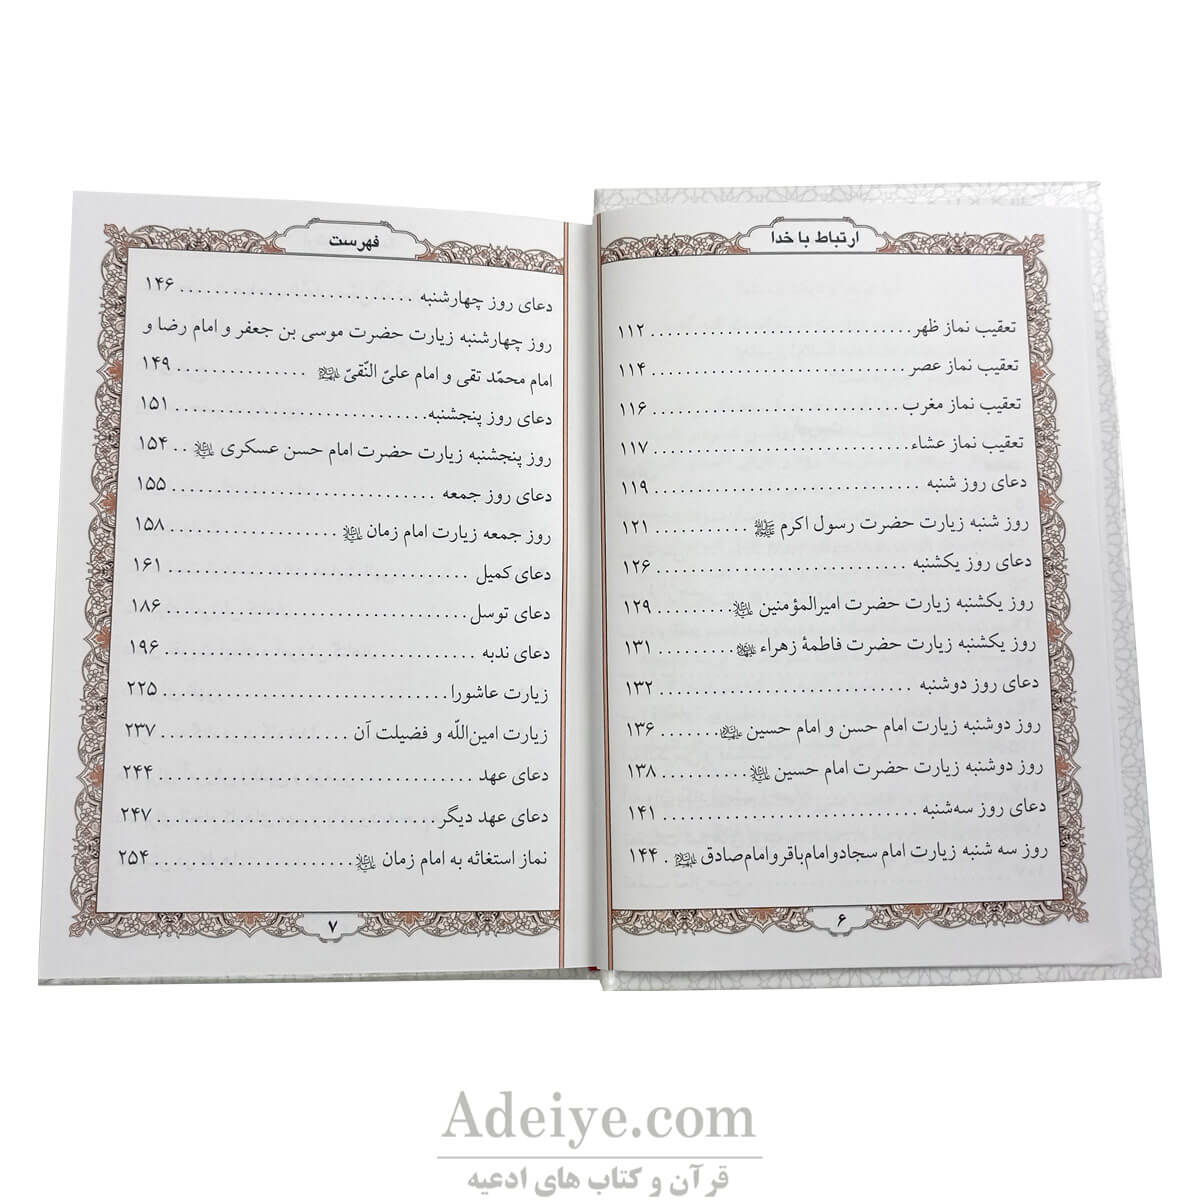 ارتباط با خدا
تعقیب نماز ظهر ............................ ۱۱۲
تعقیب نماز عصر ............................ ۱۱۴
تعقیب نماز مغرب ............................ ۱۱۶
تعقیب نماز عشاء ............................ ۱۱۷
دعای روز شنبه ............................ ۱۱۹
روز شنبه زیارت حضرت رسول اکرم ﷺ ........... ۱۲۱
دعای روز یکشنبه ............................ ۱۲۶
روز یکشنبه زیارت حضرت امیرالمؤمنین علیه‌السلام ......... ۱۲۹
روز یکشنبه زیارت حضرت فاطمهٔ زهراء علیهاالسلام ......... ۱۳۱
دعای روز دوشنبه ............................ ۱۳۲
روز دوشنبه زیارت امام حسن و امام حسین علیهماالسلام ....... ۱۳۶
روز دوشنبه زیارت حضرت امام حسین علیه‌السلام ........... ۱۳۸
دعای روز سه‌شنبه ............................ ۱۴۱
روز سه شنبه زیارت امام سجاد و امام باقر و امام صادق علیهم‌السلام . ۱۴۴
۶
فهرست
دعای روز چهارشنبه .......................... ۱۴۶
روز چهارشنبه زیارت حضرت موسی بن جعفر و امام رضا و
امام محمّد تقی و امام علیّ النّقیّ علیهم‌السلام ............... ۱۴۹
دعای روز پنجشنبه ............................ ۱۵۱
روز پنجشنبه زیارت حضرت امام حسن عسکری علیه‌السلام .. ۱۵۴
دعای روز جمعه ............................ ۱۵۵
روز جمعه زیارت امام زمان علیه‌السلام ................... ۱۵۸
دعای کمیل ............................ ۱۶۱
دعای توسل ............................ ۱۸۶
دعای ندبه ............................ ۱۹۶
زیارت عاشورا ............................ ۲۲۵
زیارت امین‌اللّه و فضیلت آن ..................... ۲۳۷
دعای عهد ............................ ۲۴۴
دعای عهد دیگر ............................ ۲۴۷
نماز استغاثه به امام زمان علیه‌السلام ..................... ۲۵۴
۷
Adeiye.com
قرآن و کتاب های ادعیه